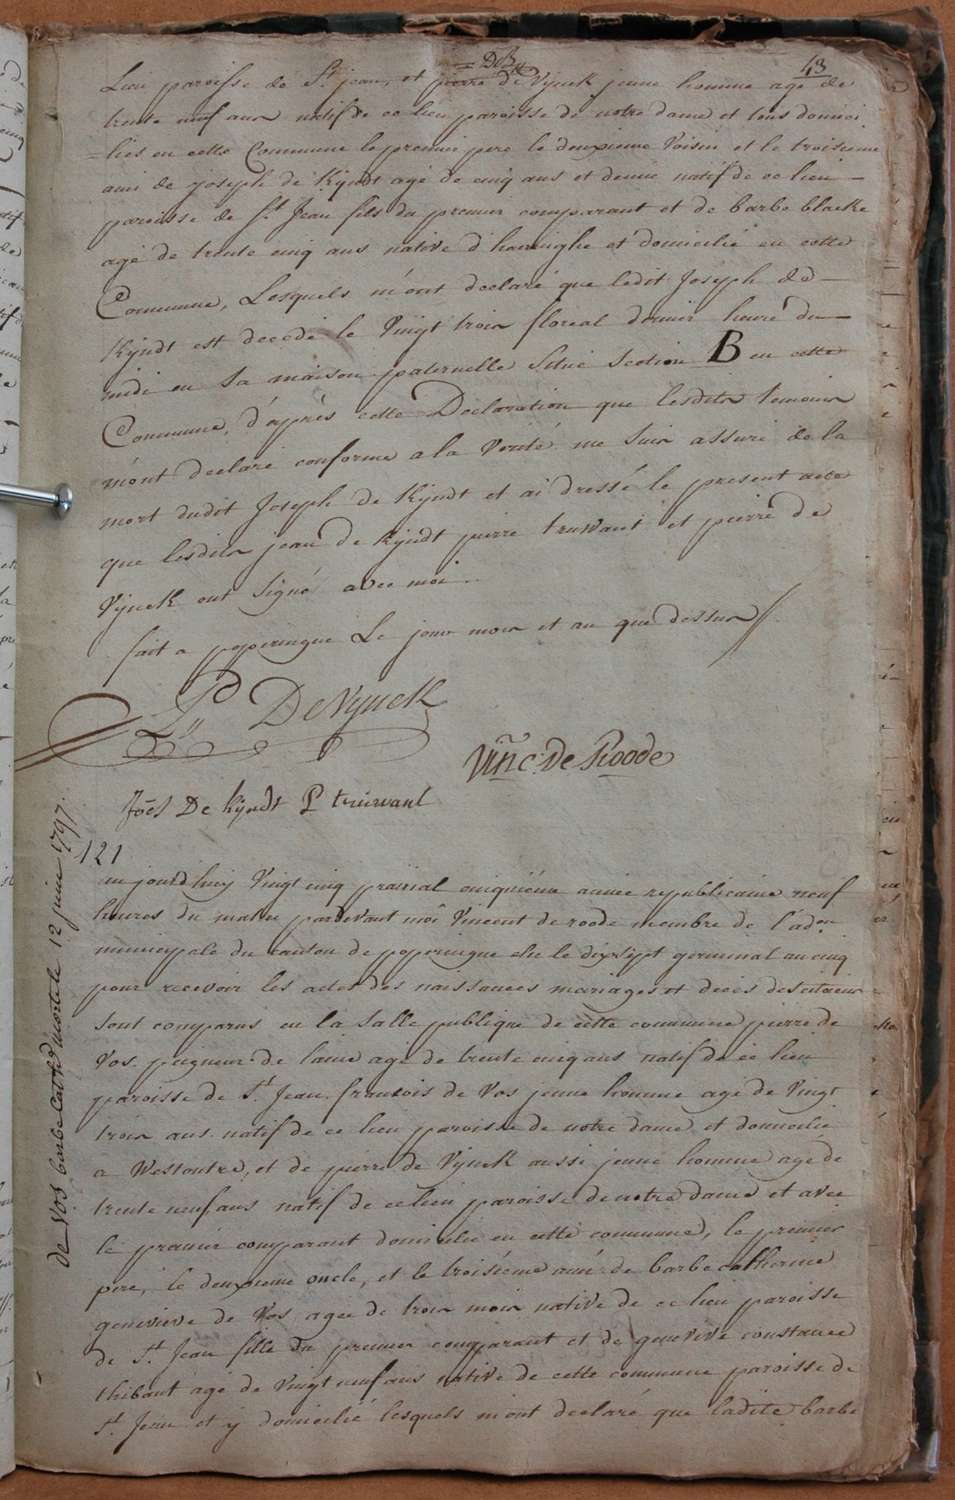 43
Lieu paroisse de St. jean, et pierre de Vijnck jeune homme agé de
trente neuf ans natif de ce lieu paroisse de notre dame et tous domici
=liés en cette Commune le premier pere le deuxieme Voisin et le troisieme
ami de joseph de Kijndt agé de cinq ans et demie natif de ce lieu —
paroisse de St Jean fils du premier comparant et de barbe blaeke
agé de trente cinq ans native d'haringhe et domicilié en cette
Commune, Lesquels m'ont declaré que ledit Joseph de —
Kijndt est decedé le Vingt trois floreal dernier heure du —
midi en sa maison paternelle situé section B en cette
Commune, d'après cette Declaration que lesdits temoins
m'ont declaré conforme a la Verité me suis assuré de la
mort dudit Joseph de Kijndt et ai dressé le present acte
que lesdits jean de Kijndt pierre truwant et pierre de
Vijnck ont signé avec moi..
fait a poperingue Le jour mois et an que dessus //
Pd DeVijnck
Vinc: De Roode
Joēs De Kijndt P truwant
121
de Vos barbe Cathe morte le 12 juin 1797.
aujourd'huij Vingt cinq prairial cinquiéme année republicaine neuf
heures du matin pardevant moi Vincent de roode membre de l'adon
municipale du canton de poperingue elu le dixsept germinal an cinq
pour recevoir les actes des naissances mariages et decés des citoiens
sont comparus en la salle publique de cette commune pierre de
Vos peigneur de laine agé de trente cinq ans natif de ce lieu
paroisse de St Jean. francois de Vos jeune homme agé de Vingt
trois ans natif de ce lieu paroisse de notre dame et domicilié
a Westoutre, et de pierre de Vijnck aussi jeune homme agé de
trente neuf ans natif de ce lieu paroisse de notre dame et avec
le premier comparant domicilié en cette commune, le premier
pere, le deuxieme oncle, et le troisiéme ami de barbe catherine
genevieve de Vos agée de trois mois native de ce lieu paroisse
de St. Jean fille du premier comparant et de genevieve constance
thibaut agé de Vingt neuf ans native de cette commune paroisse de
St. Jean et ij domicilié lesquels m'ont declaré que ladite barbe